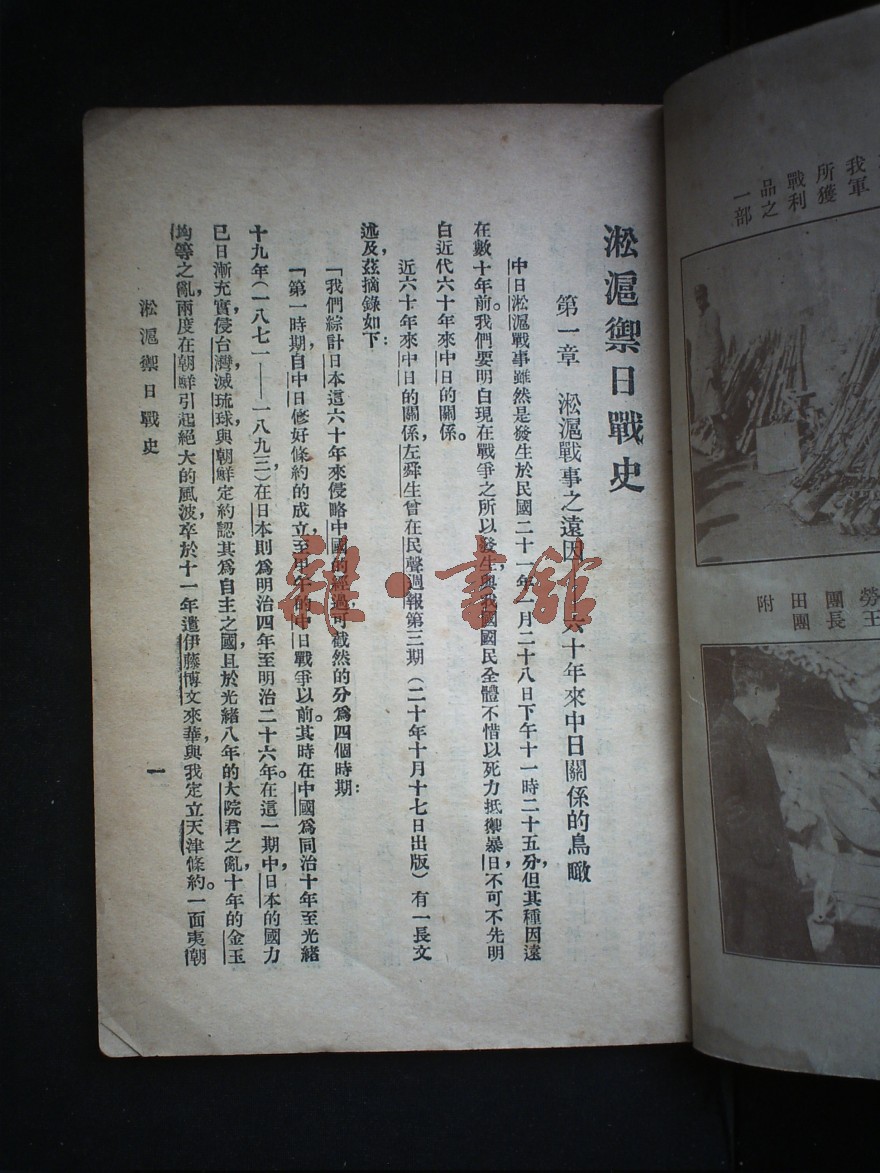 淞滬禦日戰史
第一章　淞滬戰事之遠因　六十年來中日關係的鳥瞰
中日淞滬戰事雖然是發生於民國二十一年一月二十八日下午十一時二十五分，但其種因遠
在數十年前。我們要明白現在戰爭之所以發生，與我國國民全體不惜以死力抵禦暴日，不可不先明
白近代六十年來中日的關係。
近六十年來中日的關係，左舜生曾在民聲週報第三期（二十年十月十七日出版）有一長文
述及，茲摘錄如下：
「我們綜計日本這六十年來侵略中國的經過，可截然的分爲四個時期：
「第一時期，自中日修好條約的成立，至甲午的中日戰爭以前。其時在中國爲同治十年至光緖
十九年（一八七一——一八九三）在日本則爲明治四年至明治二十六年。在這一期中，日本的國力
已日漸充實，侵台灣，滅琉球，與朝鮮定約認其爲自主之國，且於光緖八年的大院君之亂，十年的金玉
均等之亂，兩度在朝鮮引起絕大的風波，卒於十一年遣伊藤博文來華，與我定立天津條約。一面夷朝
淞滬禦日戰史
一
我軍
所獲
戰利
品之
一部
勞
王
團長
田團
附
雜·書館